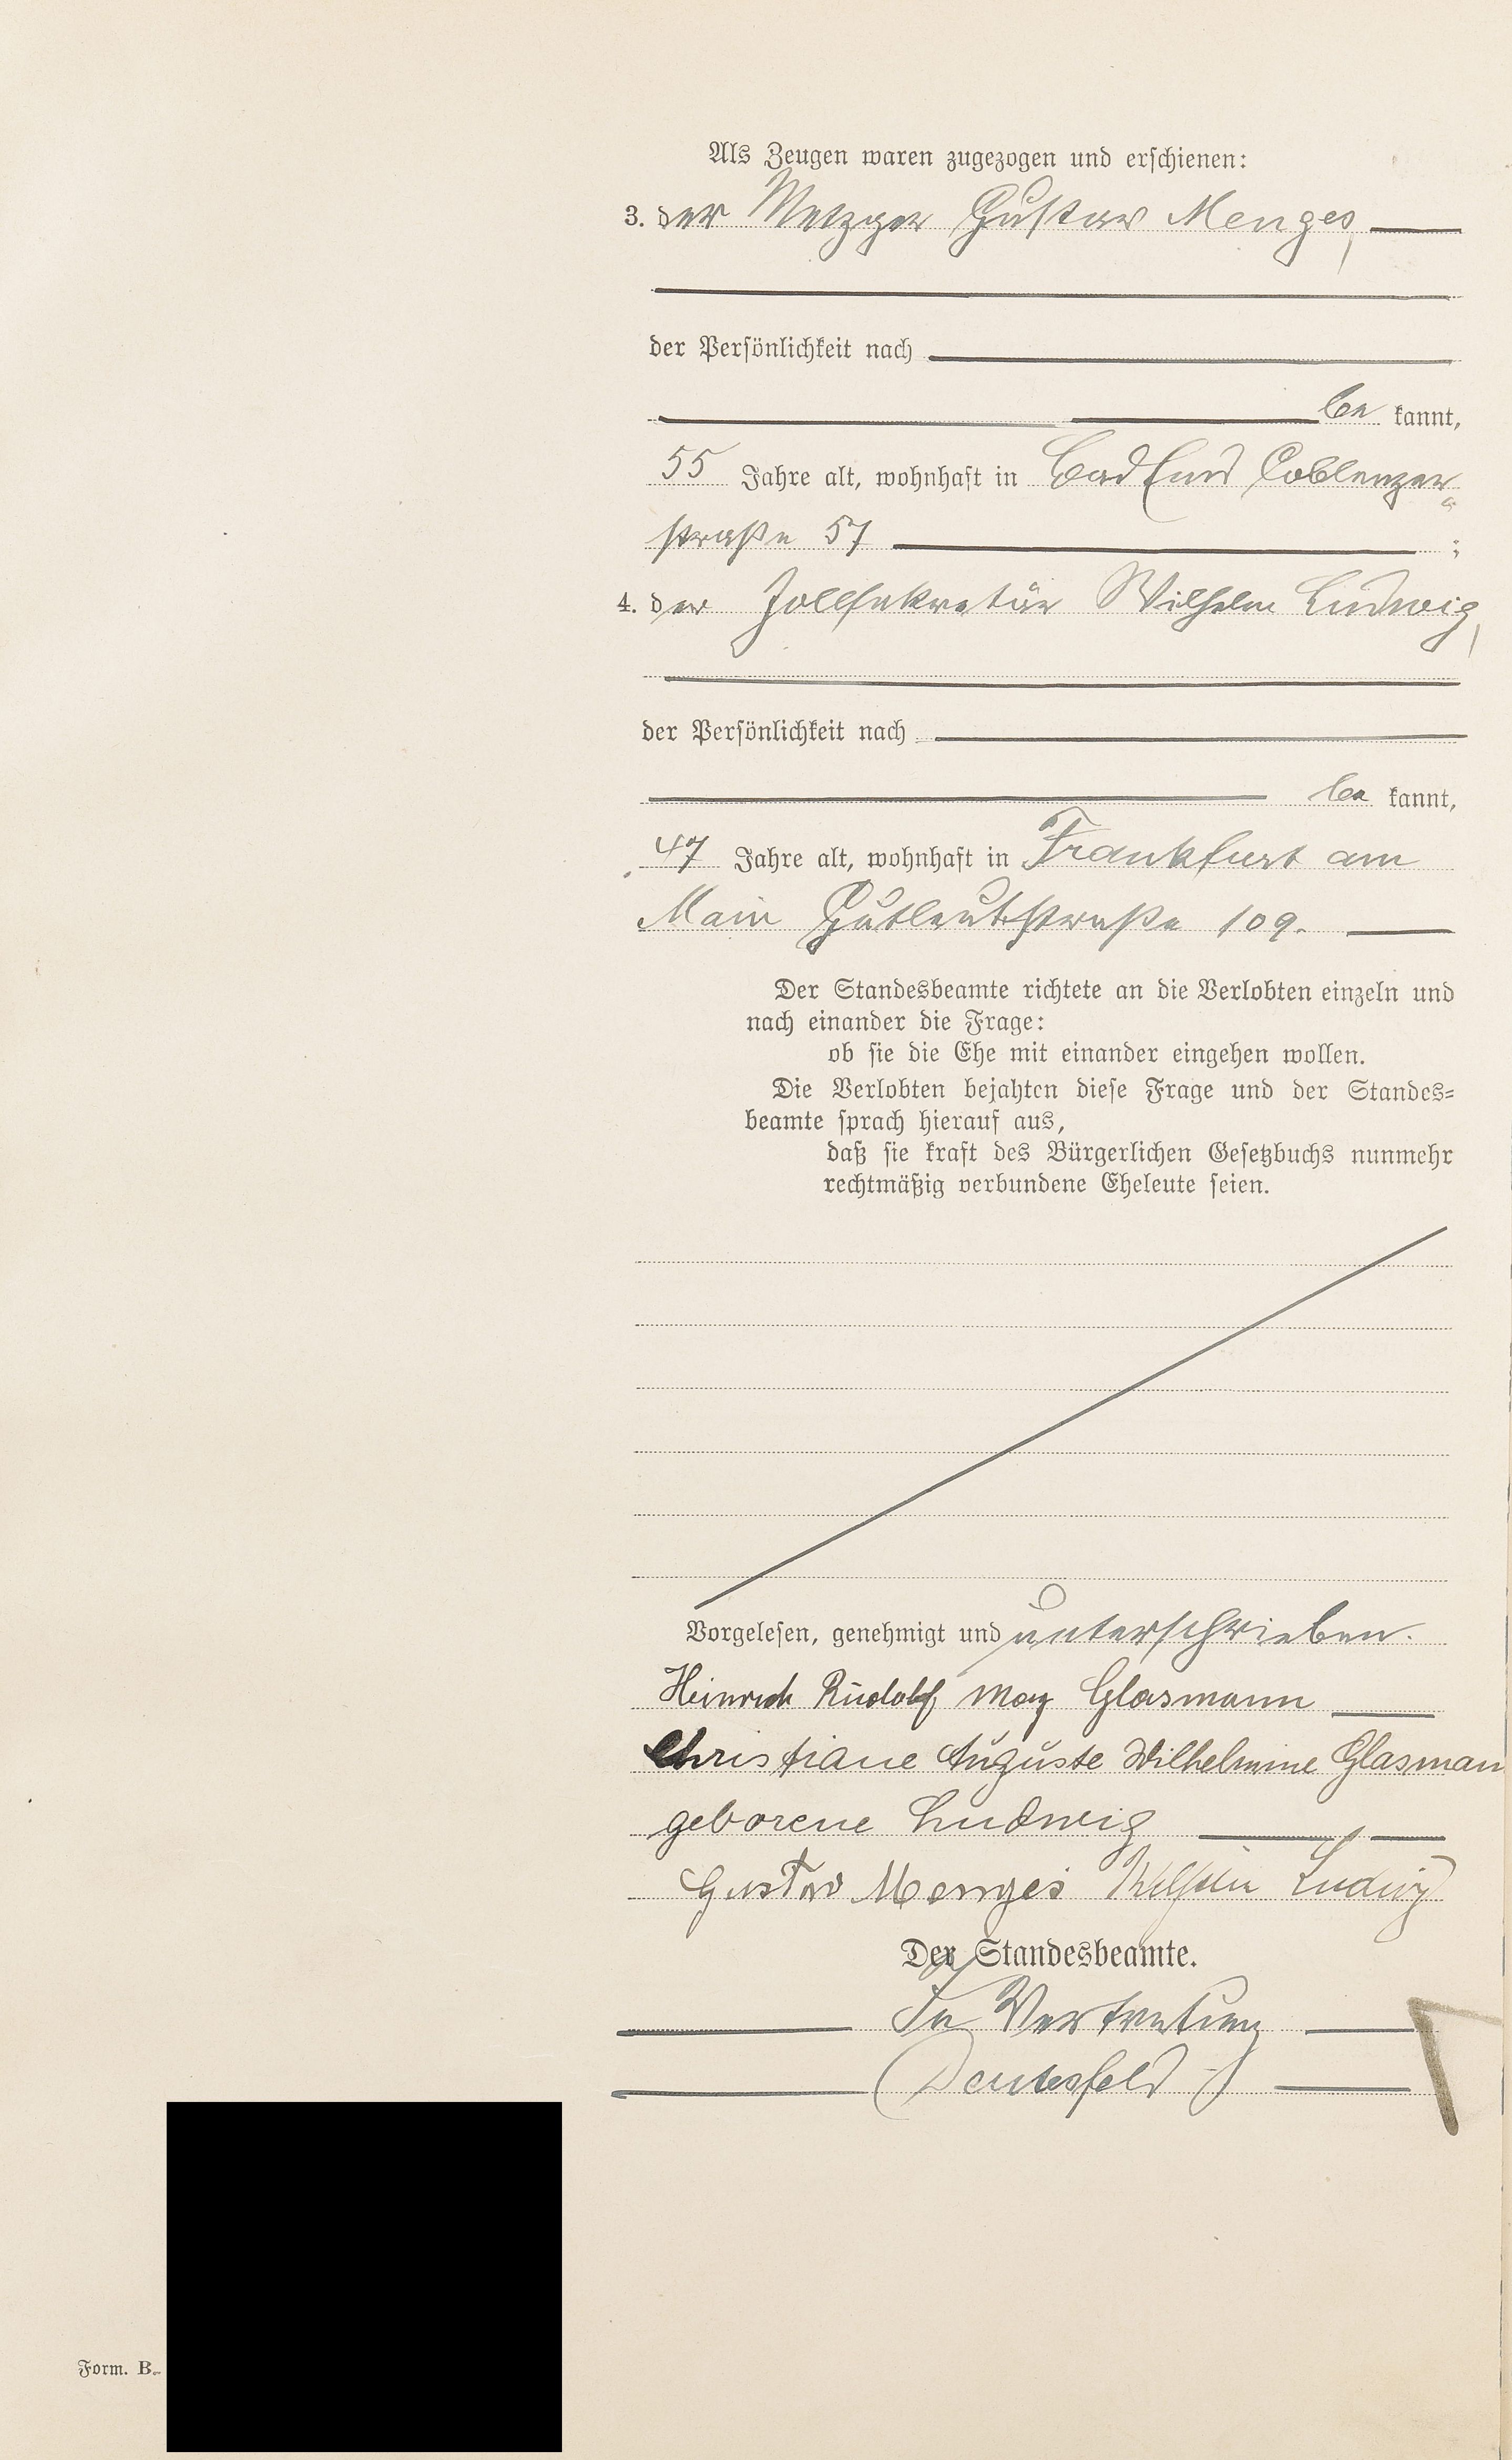 Als Zeugen waren zugezogen und erschienen:
3. der Metzger Gustav Menges,
der Persönlichkeit nach
be kannt,
55 Jahre alt, wohnhaft in Bad Ems Coblenzer
straße 57 ;
4. der Zollsekretär Wilhelm Ludwig,
der Persönlichkeit nach
be kannt,
47 Jahre alt, wohnhaft in Frankfurt am
Main Gutleutstraße 109.
Der Standesbeamte richtete an die Verlobten einzeln und
nach einander die Frage:
ob sie die Ehe mit einander eingehen wollen.
Die Verlobten bejahten diese Frage und der Standes=
beamte sprach hierauf aus,
daß sie kraft des Bürgerlichen Gesetzbuchs nunmehr
rechtmäßig verbundene Eheleute seien.
Vorgelesen, genehmigt und unterschrieben.
Heinrich Rudolf May Glasmann
Christiane Auguste Wilhelmine Glasman
geborene Ludwig
Gustav Menges Wilhelm Ludwig
Der Standesbeamte.
In Vertretung
Form. B.